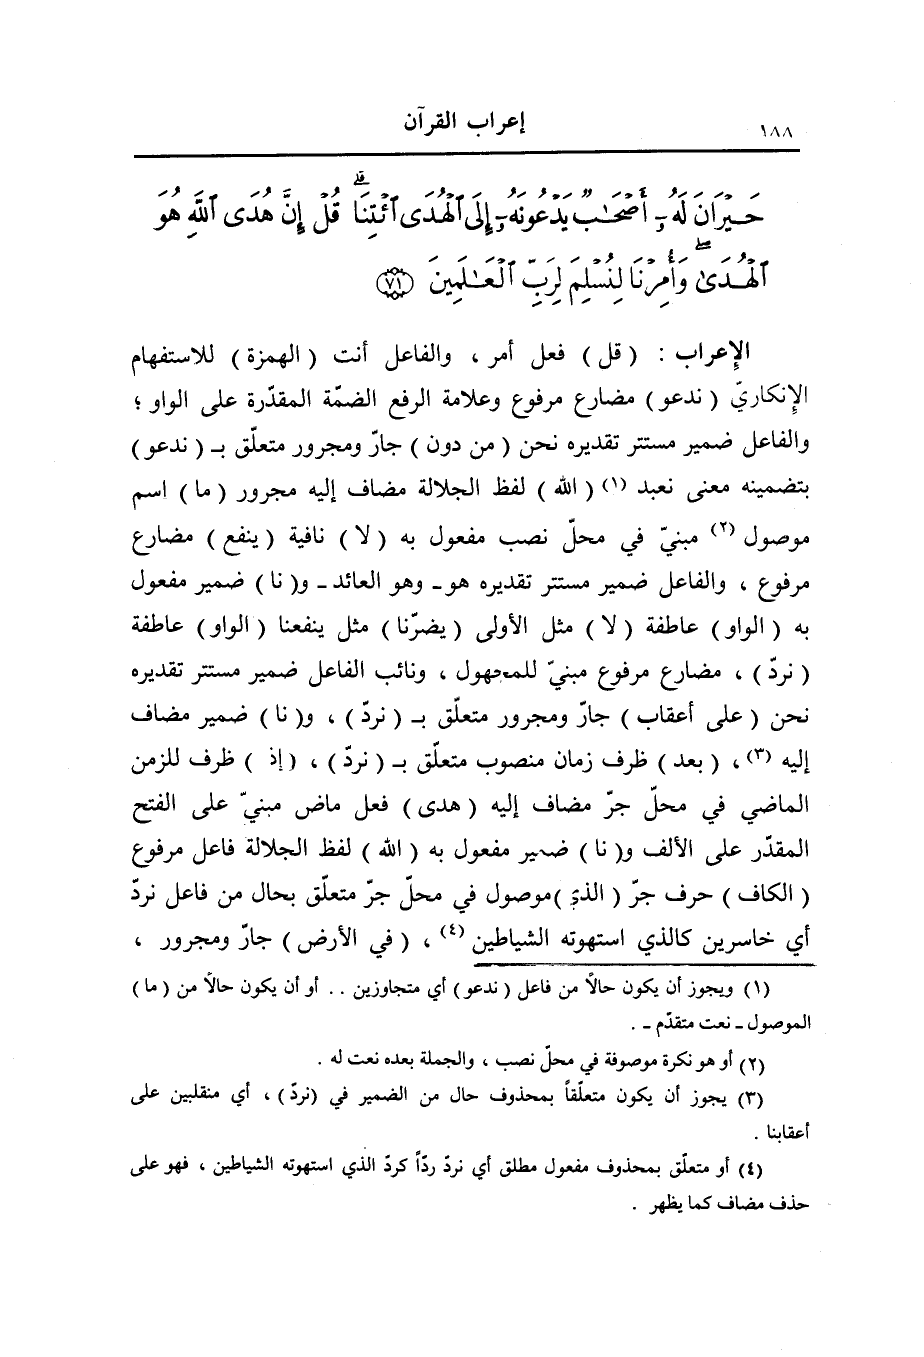 ١٨٨
إعراب القرآن
حَيْرَانَ لَهُۥٓ أَصْحَٰبٌ يَدْعُونَهُۥٓ إِلَى ٱلْهُدَى ٱئْتِنَا ۗ قُلْ إِنَّ هُدَى ٱللَّهِ هُوَ
ٱلْهُدَىٰ ۖ وَأُمِرْنَا لِنُسْلِمَ لِرَبِّ ٱلْعَٰلَمِينَ ﴿٧١﴾
الإعراب : ( قل ) فعل أمر ، والفاعل أنت ( الهمزة ) للاستفهام
الإنكاريّ ( ندعو ) مضارع مرفوع وعلامة الرفع الضمّة المقدّرة على الواو ؛
والفاعل ضمير مستتر تقديره نحن ( من دون ) جارّ ومجرور متعلّق بـ ( ندعو )
بتضمينه معنى نعبد (١) ( الله ) لفظ الجلالة مضاف إليه مجرور ( ما ) اسم
موصول (٢) مبنيّ في محلّ نصب مفعول به ( لا ) نافية ( ينفع ) مضارع
مرفوع ، والفاعل ضمير مستتر تقديره هو ـ وهو العائد ـ و( نا ) ضمير مفعول
به ( الواو ) عاطفة ( لا ) مثل الأولى ( يضرّنا ) مثل ينفعنا ( الواو ) عاطفة
( نردّ ) ، مضارع مرفوع مبنيّ للمجهول ، ونائب الفاعل ضمير مستتر تقديره
نحن ( على أعقاب ) جارّ ومجرور متعلّق بـ ( نردّ ) ، و( نا ) ضمير مضاف
إليه (٣) ، ( بعد ) ظرف زمان منصوب متعلّق بـ ( نردّ ) ، ( إذ ) ظرف للزمن
الماضي في محلّ جرّ مضاف إليه ( هدى ) فعل ماض مبنيّ على الفتح
المقدّر على الألف و( نا ) ضمير مفعول به ( الله ) لفظ الجلالة فاعل مرفوع
( الكاف ) حرف جرّ ( الذي )موصول في محلّ جرّ متعلّق بحال من فاعل نردّ
أي خاسرين كالذي استهوته الشياطين (٤) ، ( في الأرض ) جارّ ومجرور ،
(١) ويجوز أن يكون حالاً من فاعل ( ندعو ) أي متجاوزين . . أو أن يكون حالاً من ( ما )
الموصول ـ نعت متقدّم ـ .
(٢) أو هو نكرة موصوفة في محلّ نصب ، والجملة بعده نعت له .
(٣) يجوز أن يكون متعلّقاً بمحذوف حال من الضمير في (نردّ ) ، أي منقلبين على
أعقابنا .
(٤) أو متعلّق بمحذوف مفعول مطلق أي نردّ ردّاً كردّ الذي استهوته الشياطين ، فهو على
حذف مضاف كما يظهر .